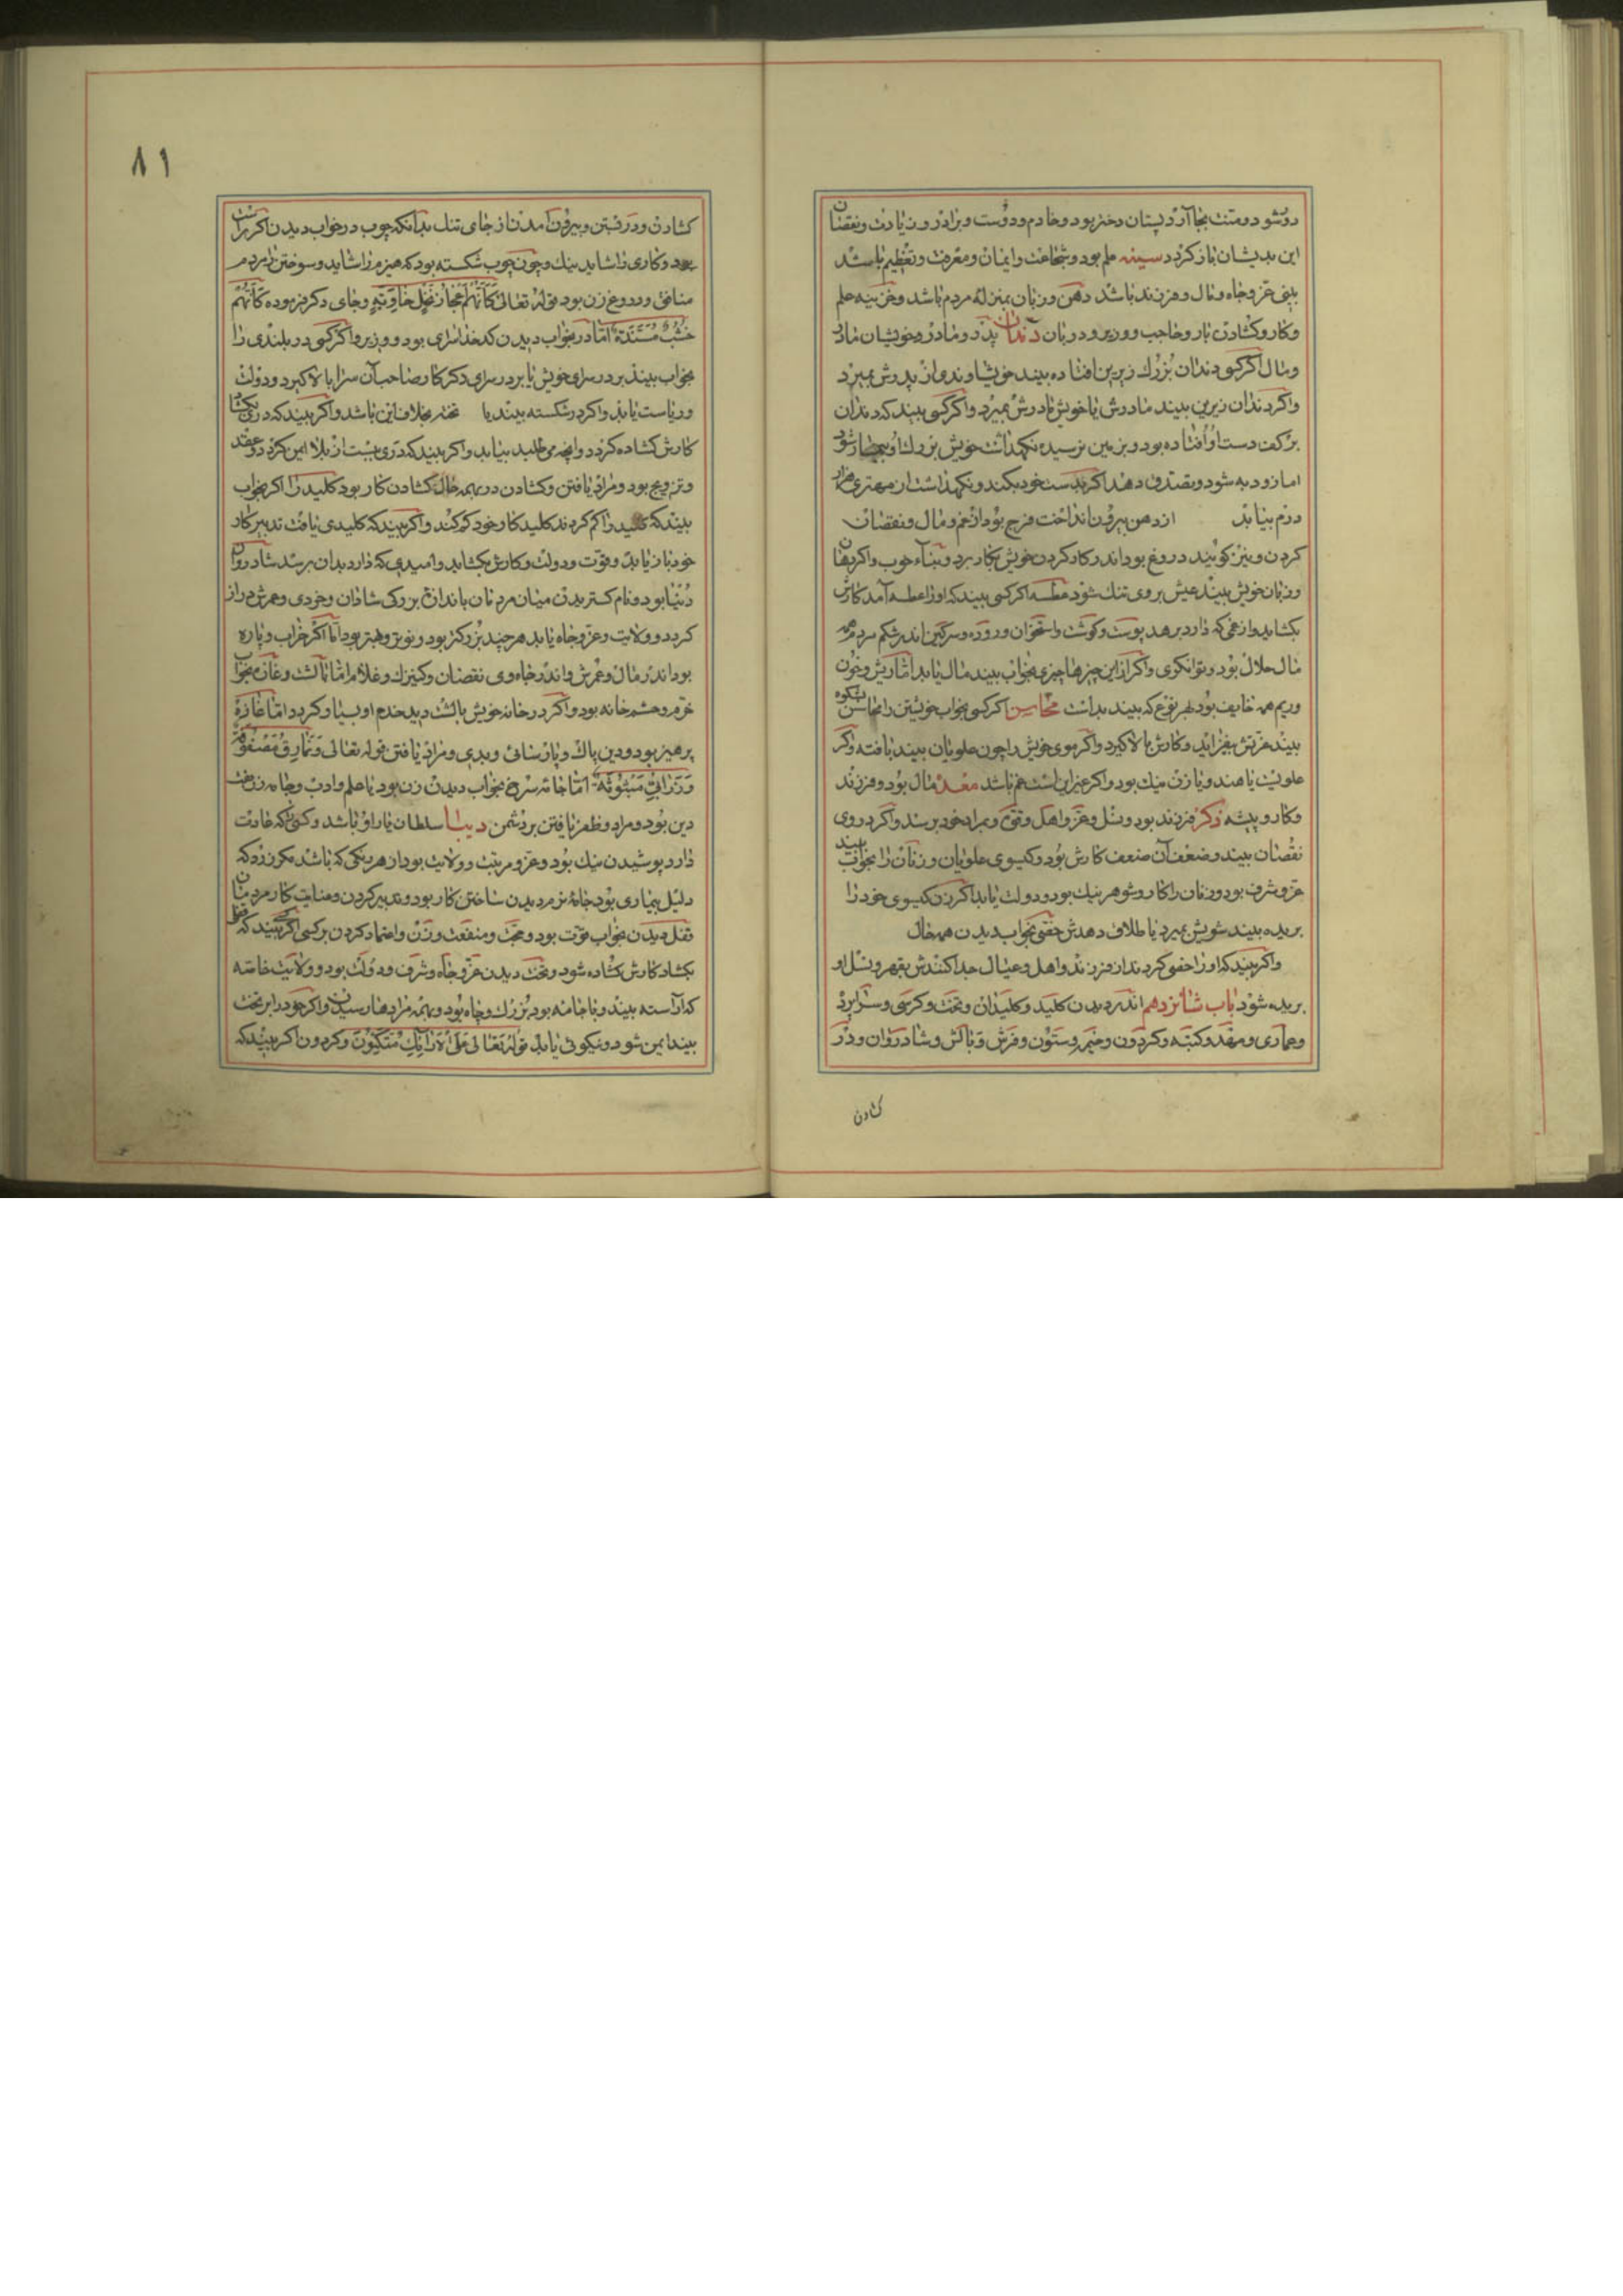 روشود ومنت بجا آرد پستان دختر بود وخادم ودوست وبرادر وزیادت ونقصان
این بدیشان باز کردد سینه علم بود وشجاعت وایمان ومعرفت وتعظیم باشد
بینی عز وجاه ومال وفرزند باشد دهن وزبان بمنزله مردم باشد وخزینه علم
وکار وکشادن بار وحاجب ووزیر ودربان دندان پدر ومادر وخویشان مادر
ومال اکر کسی دندان بزرك زبرین افتاده بیند خویشاوندی از پدرش بمیرد
واکر دندان زیرین بیند مادرش یا خویش مادرش بمیرد واکر کسی بیند که دندان
بر کف دست او افتاده بود وبزمین نرسیده نکهداشت خویش بزرك او بیمار شود
اما زود به شود وبصدق دهد اکر بدست خود بکند ونکهداشت از مهتری هزار
درم بیابد از دهن بیرون انداخت فرج بود از غم ومال ونقصان
کردن ونیز کویند دروغ بود اندر کار کردن خویش بکار برد وثناء خوب واکر دهان
وزبان خویش بیند عیش بروی تنك شود عطسه اکر کسی بیند که اورا عطسه آمد کارش
بکشاید واز غمی که دارد برهد پوست وکوشت واستخوان وروده وسرکین اندر شکم مردم همه
مال حلال بود وتوانکری واکر از این چیزها چیزی بخواب بیند مال یابد اما ریش وخون
وریم همه بود بهر نوع که بیند بدانست محاسن اکر کسی بخواب خویشتن را محاسن بشکوه
بیند عزتش بیفزاید وکارش بالا کیرد واکر موی خویش را چون علویان بیند بافته واکر
علویست یا هند ویا زن نیك بود واکر غیر این است غم باشد معده مال بود وفرزند
وکار وپیشه ذکر فرزند بود ونسل وعز واهل وقوی وبمراد خود برسد واکر در وی
نقصان بیند وضعف آن ضعف کارش بود وکیسوی علویان وزنان را بخواب بیند
عز وشرف بود وزنان را کار وشوهر نیك بود ودولت یابد اکر زن کیسوی خود را
بریده بیند شویش بمیرد یا طلاق دهدش خفتی بخواب دیدن همه حال
واکر بیند که اورا خفی کردند از فرزند واهل وعیال جدا کنندش بقهر ونسل او
بریده شود باب شانزدهم اندر دیدن کلید وکلیدان وتخت وکرسی وسرا پرده
وعماری ومهد وکبته وکردون وخیمه وستون وفرش وبالش وشادروان ودر
کشادن
٨١
کشادن ودر رفتن وبیرون آمدن از جای تنك بدانکه چوب در خواب دیدن اکر راست
بود وکاری را شاید نیك وچون چوب شکسته بود که هیزم را شاید وسوختن را مردم
منافق ودروغ زن بود قوله تعالی کَاَنَّهُم اَعجازُ نَخلٍ خاوِیَةٍ وجای دکر فرموده کَاَنَّهُم
خُشُبٌ مُسَنَّدَةٌ اما در بخواب دیدن کدخدا سرای بود ووزیر واکر کسی در بلندی را
بخواب بیند بر در سرای خویش یا بر در سرای دکر کار صاحب آن سرا بالا کیرد ودولت
وریاست یابد واکر در شکسته بیند یا تخته بخلاف این باشد واکر بیند که دری بکشاد
کارش کشاده کردد وانچه می طلبد بیابد واکر بیند که دری ببست از بلا ایمن کردد وعقد
وتزویج بود ومراد یافتن وکشادن در بهمه حال کشادن کار بود کلید را اکر بخواب
بیند که کلید را کم کردند کلید کار خود کم کند واکر بیند که کلیدی یافت تدبیر کار
خود باز یابد وقوت ودولت وکارش بکشاید وامیدی که دارد بدان برسد شادروان
دنیا بود ونام کستریدن میان مردمان باندازه بزرکی شادان وخردی وعمرش دراز
کردد وولایت وعز وجاه یابد هر چند بزرکتر بود ونوتر وبهتر بود اما اکر خراب وپاره
بود اندر مال وعمرش واندر جاه وی نقصان وکنیزك وغلام اما بالشت بخواب
خرم وحشم خانه بود واکر در خانه خویش بالشت دید خدم او بسیار کردد اما
پرهیز بود ودین پاك وپارسائی ومراد یافتن قوله تعالی وَنَمارِقُ مَصفوفَةٌ
وَزَرابِیُّ مَبثوثَةٌ اما جامه سرخ بخواب دیدن زن بود یا علم وادب وجامه زن سخت
دین بود ومراد وظفر یافتن بر دشمن دیبا سلطان یار او باشد وکسی که عادت
دارد پوشیدن نیك بود وعز ومرتبت وولایت بود از هر رنکی که باشد مکر زرد که
دلیل بیماری بود جامه نو مرد دیدن ساختن کار بود وتدبیر کردن وعنایت کار مردمان
قفل دیدن بخواب قوت بود وحجت ومنفعت وزن واعتماد کردن بر کسی اکر بیند که قفل
بکشاد کارش کشاده شود وتخت دیدن عز وجاه وشرف ودولت بود وولایت خاصه
که آراسته بیند وبا جامه بود بزرك وجاه بود وبهمه مرادها رسیدن واکر خود را بر تخت
بیند ایمن شود ونیکوئی یابد قوله تعالی عَلَی الاَرائِكِ مُتَّکِئون وکردون اکر بیند که